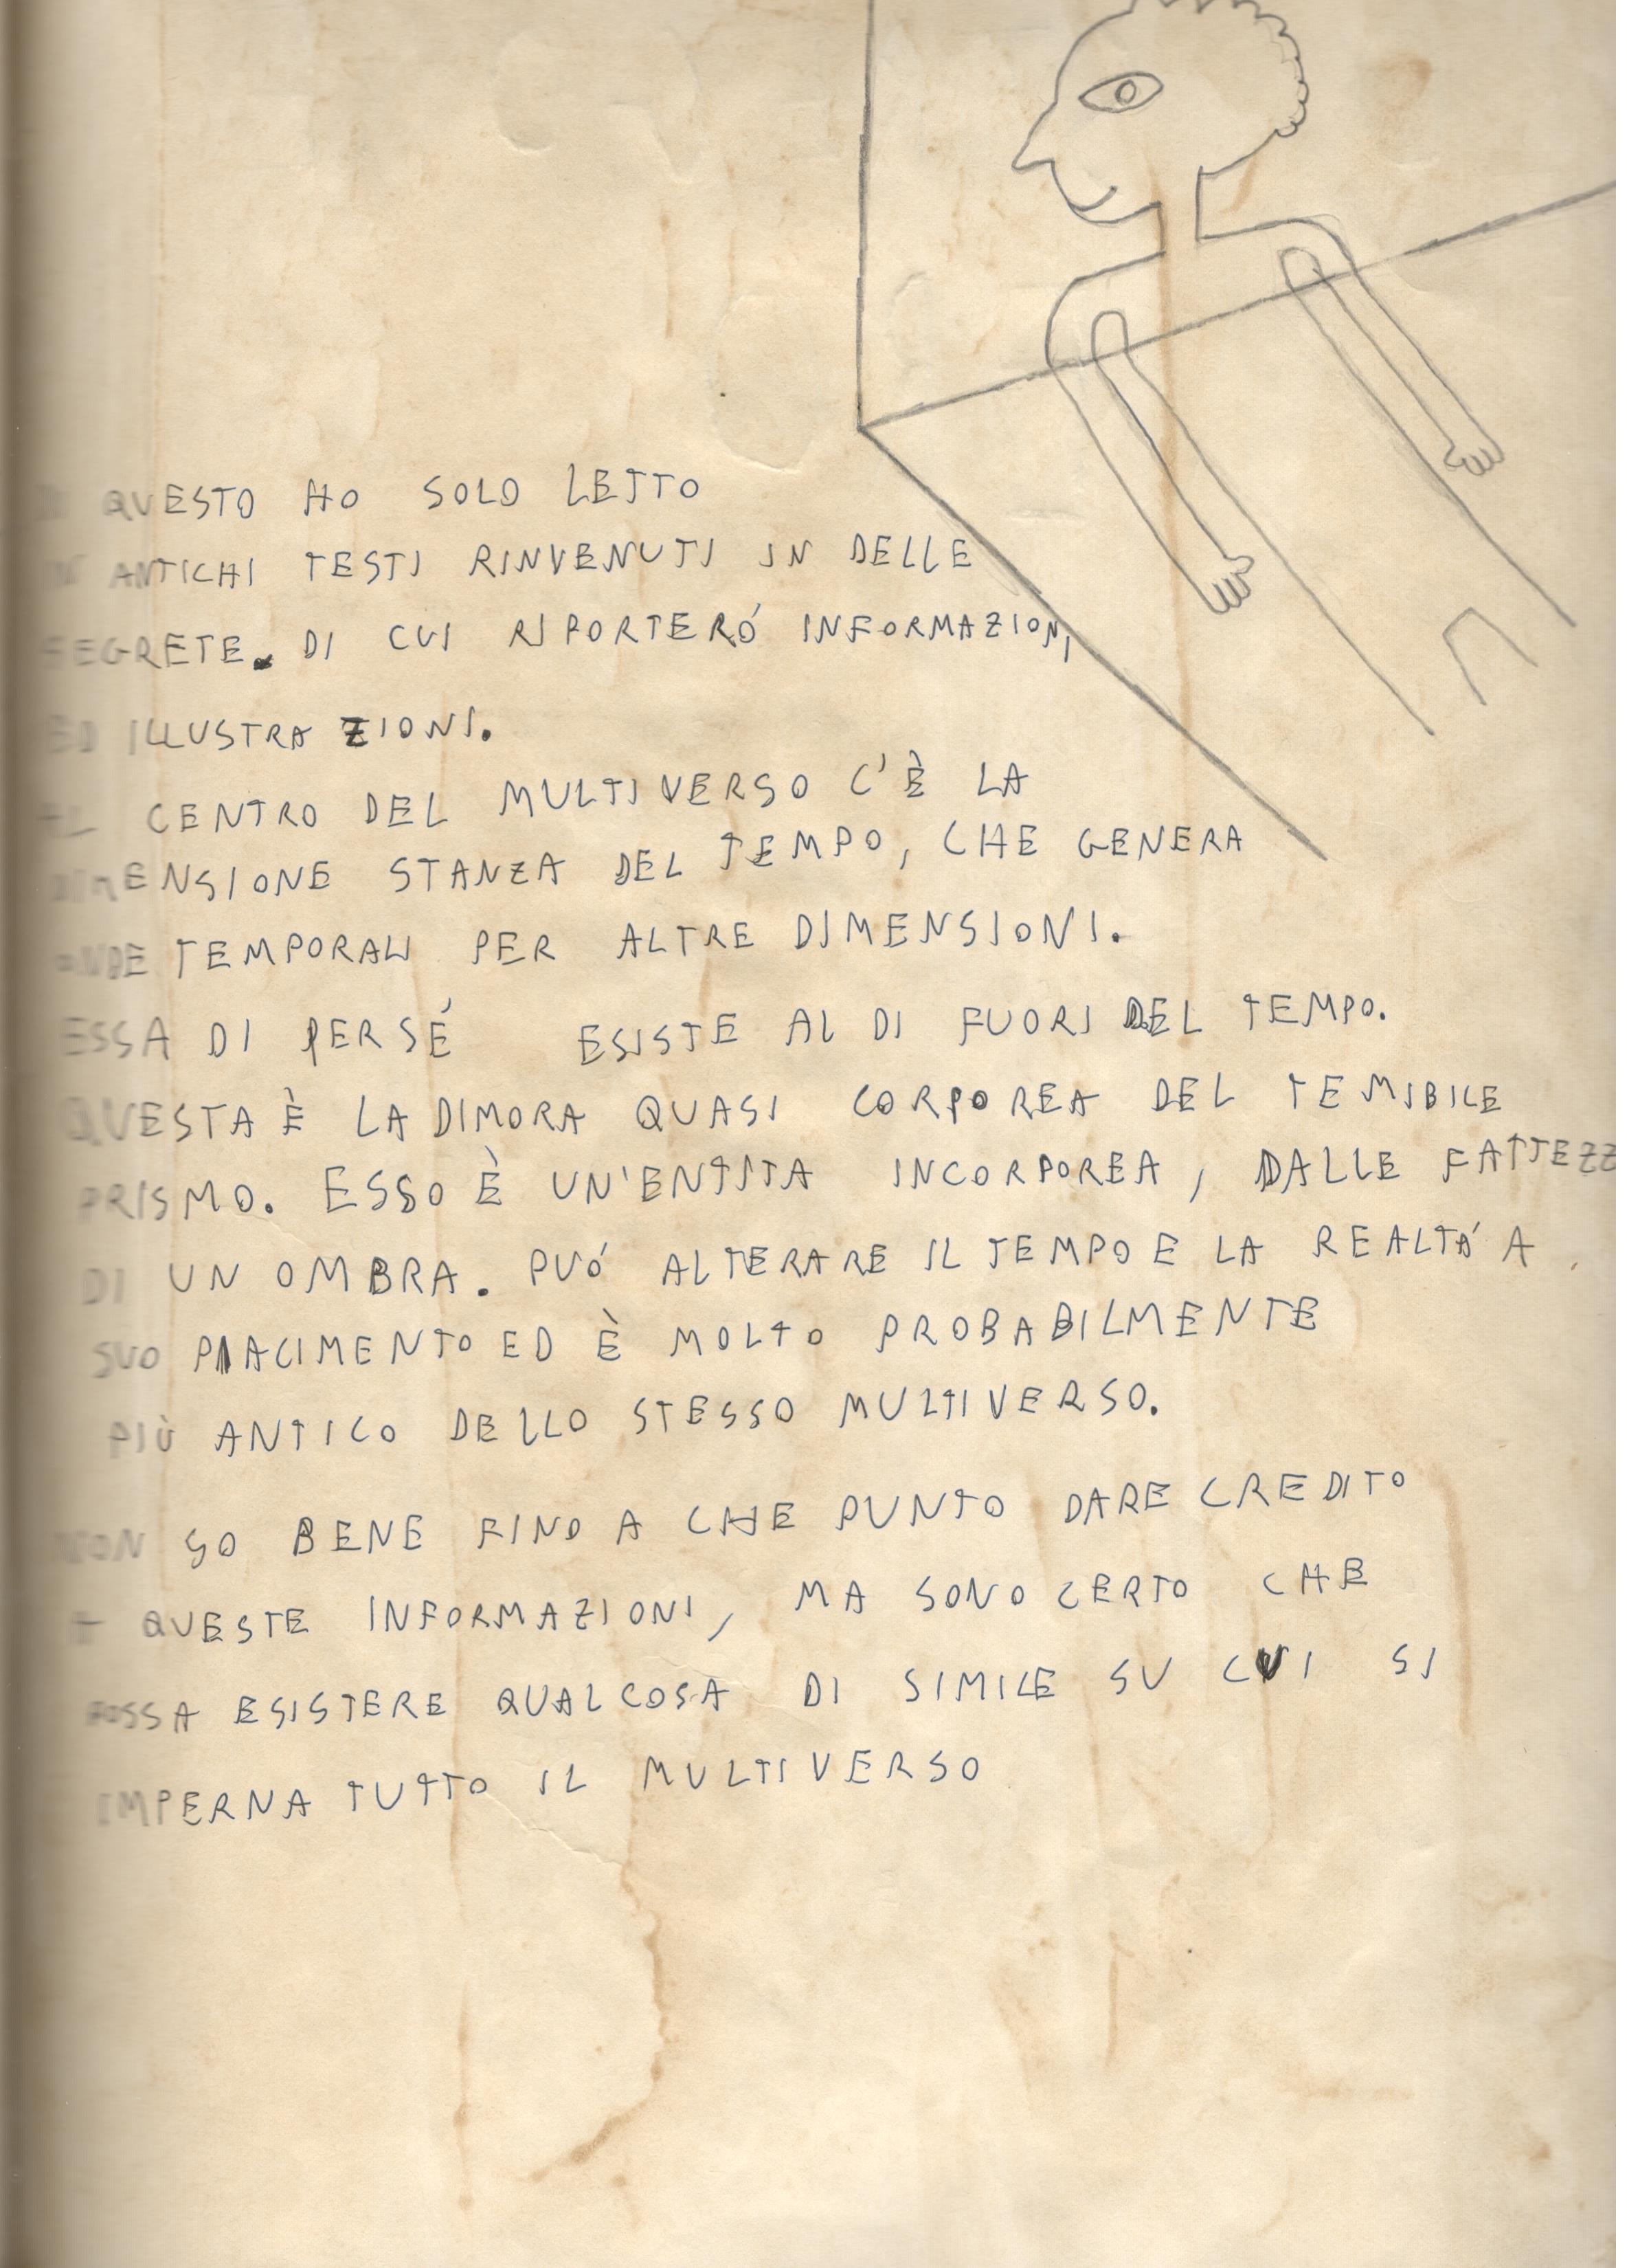 DI QUESTO HO SOLO LETTO
IN ANTICHI TESTI RINVENUTI IN DELLE
SEGRETE. DI CUI RIPORTERÓ INFORMAZIONI
ED ILLUSTRAZIONI.
AL CENTRO DEL MULTIVERSO C'È LA
DIMENSIONE STANZA DEL TEMPO, CHE GENERA
ONDE TEMPORALI PER ALTRE DIMENSIONI.
ESSA DI PERSÉ ESISTE AL DI FUORI DEL TEMPO.
QUESTA È LA DIMORA QUASI CORPOREA DEL TEMIBILE
PRISMO. ESSO È UN'ENTITA INCORPOREA, DALLE FATTEZZ
DI UN OMBRA. PUÓ ALTERARE IL TEMPO E LA REALTÁ A
SUO PIACIMENTO ED È MOLTO PROBABILMENTE
PIÙ ANTICO DELLO STESSO MULTIVERSO.
NON SO BENE FINO A CHE PUNTO DARE CREDITO
A QUESTE INFORMAZIONI, MA SONO CERTO CHE
POSSA ESISTERE QUALCOSA DI SIMILE SU CUI SI
IMPERNA TUTTO IL MULTIVERSO